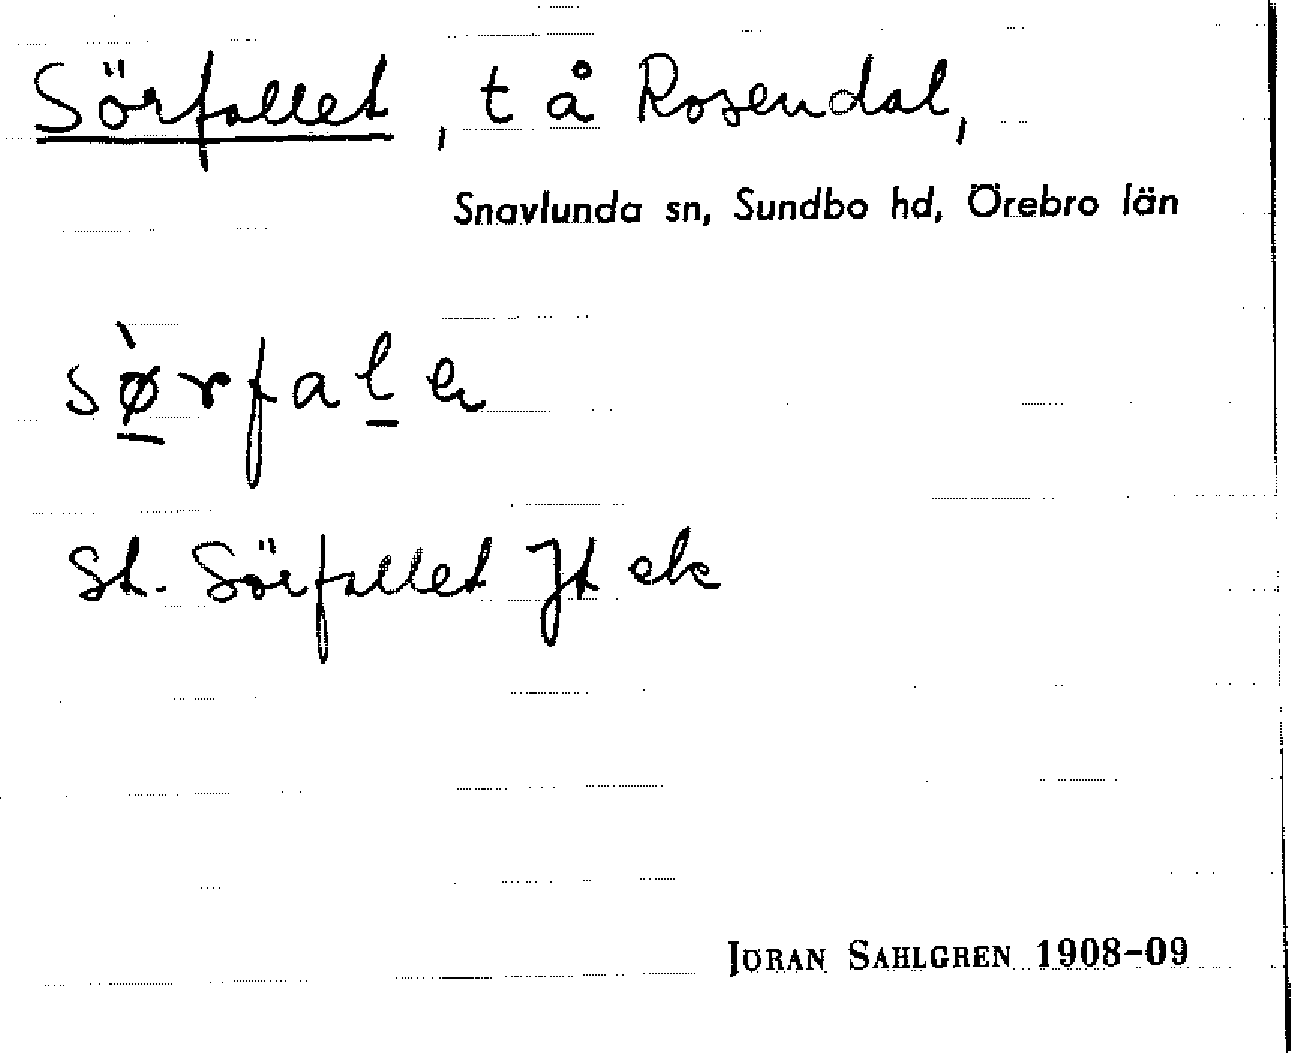 Sörfallet, t å Rosendal,
Snavlunda sn, Sundbo hd, Örebro län
sø̀rfalə
St. Sörfallet Jt ek
JÖRAN SAHLGREN 1908-09